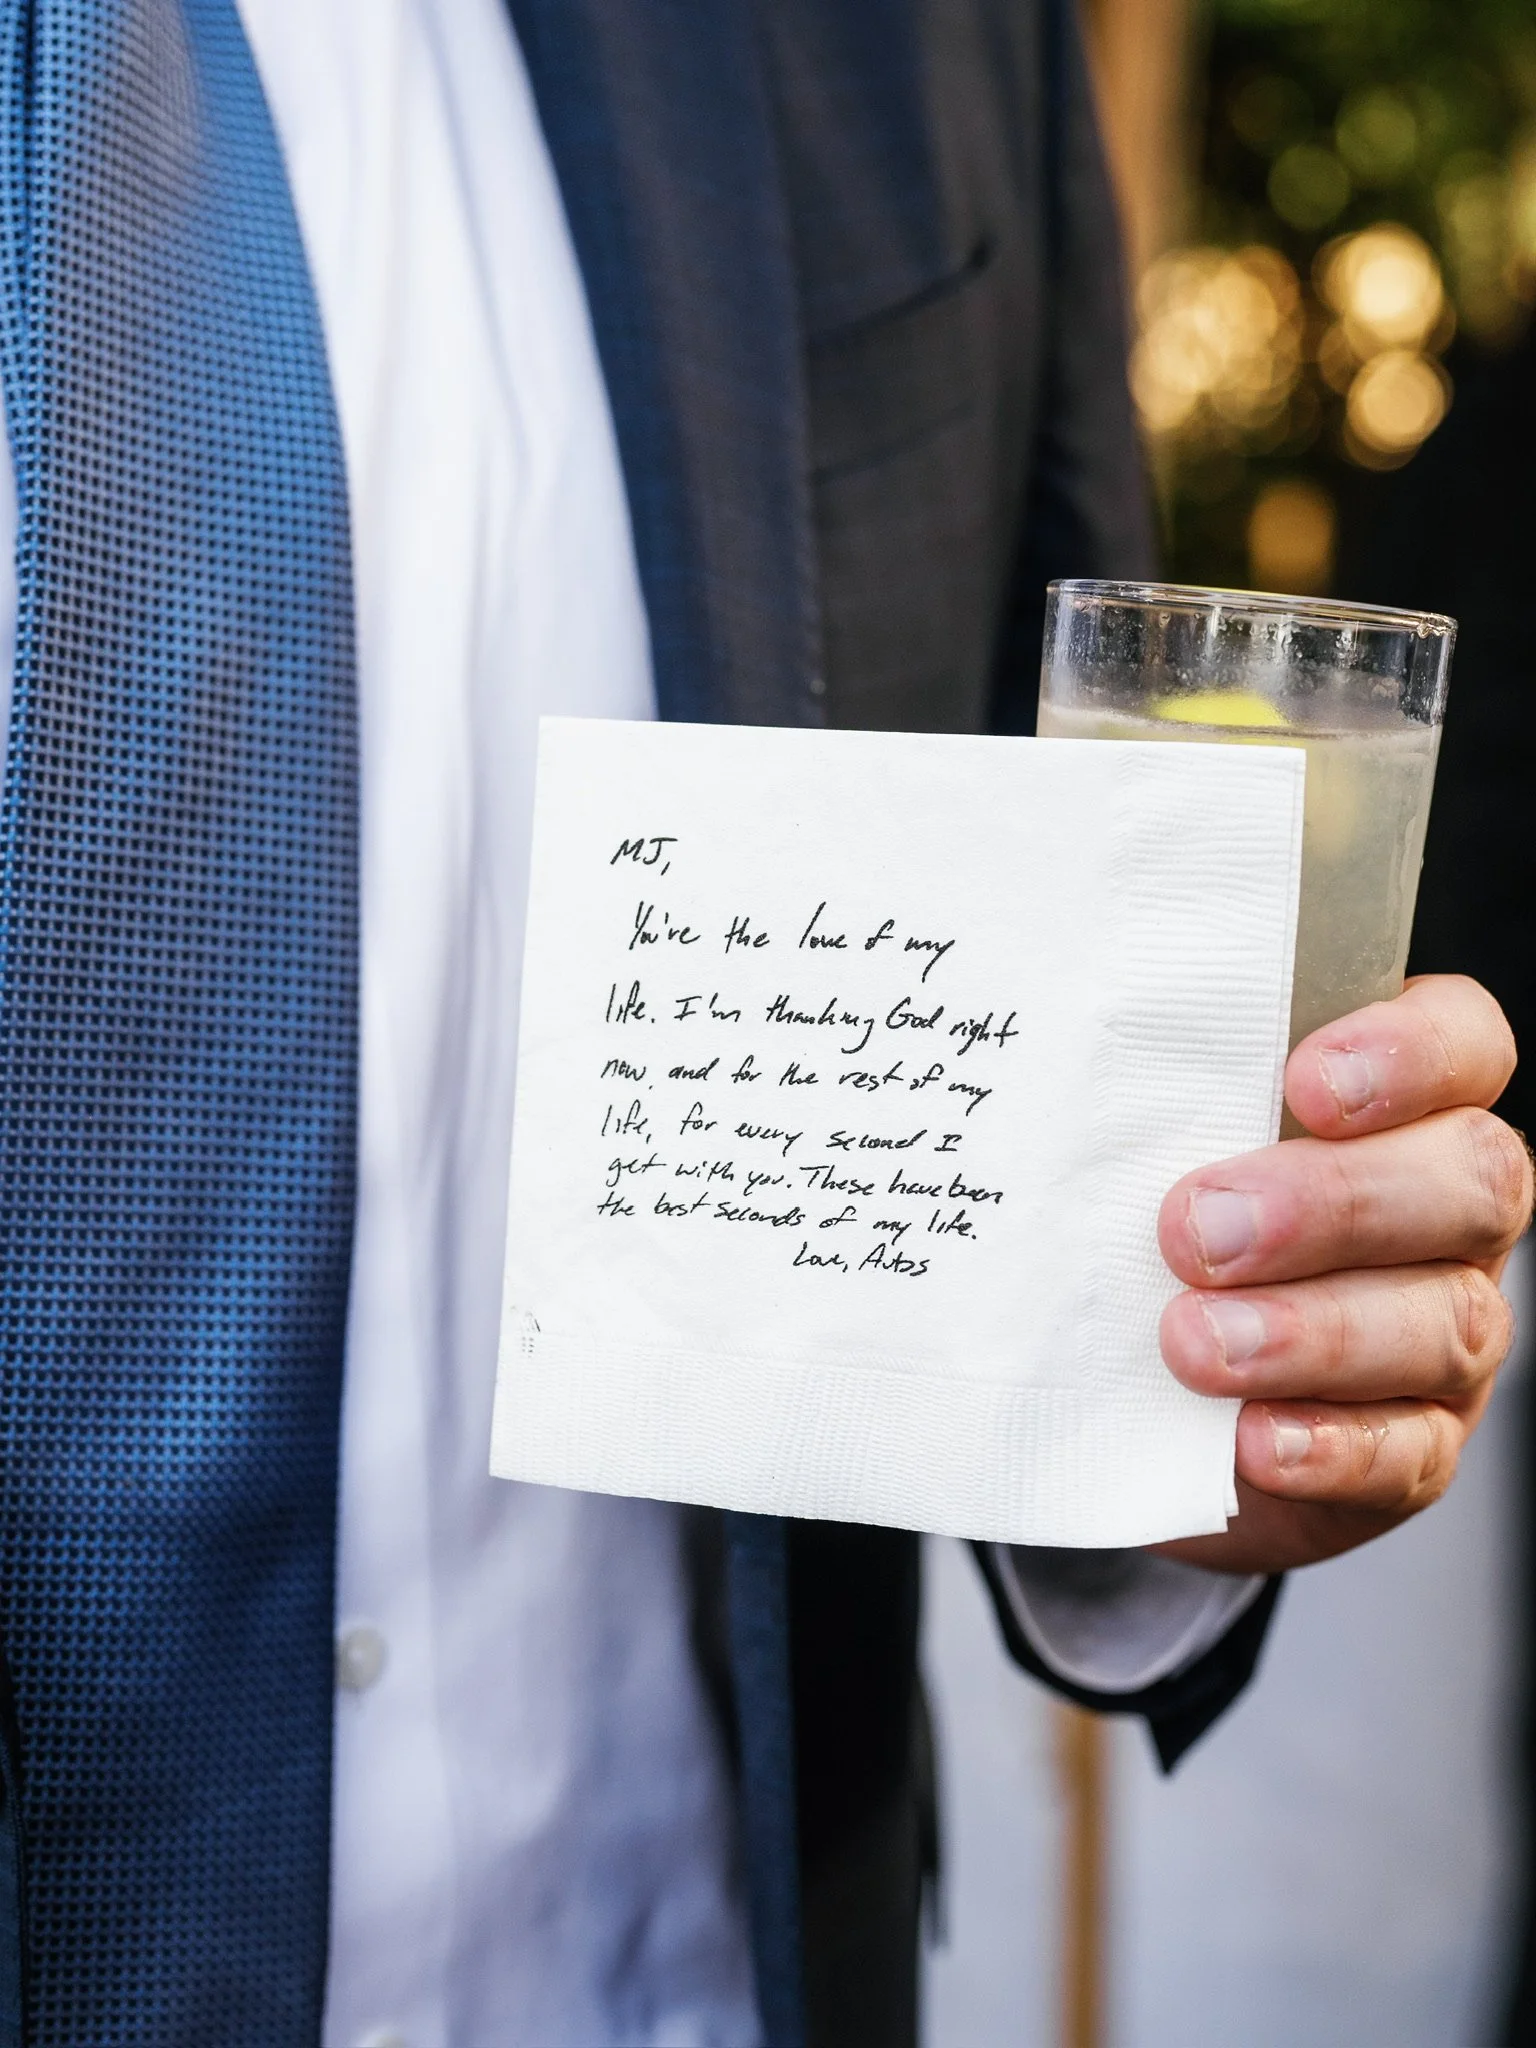 MJ,
You're the love of my
life. I'm thanking God right
now, and for the rest of my
life, for every second I
get with you. These have been
the best seconds of my life.
Love, Autos